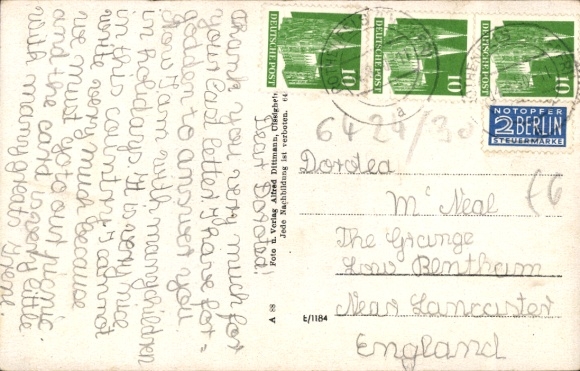 Dear Dorotea!
thank you very much for
your last letter. I have for=
goden to answer you.
Now I am with many children
in holidays. It is very nice
in this country. I cannot
write very much because
we must go to our picnic
and the card is very little
With many greats Irene.
DEUTSCHE POST
10
DEUTSCHE POST
10
DEUTSCHE POST
10
NOTOPFER
2 BERLIN
STEUERMARKE
6424/30
£6
Dorotea
Mc Neal
The Grange
Low Bentham
Near Lancaster
England
Foto u. Verlag Alfred Dittmann,
Jede Nachbildung ist verboten. 64
A 88
E/1184